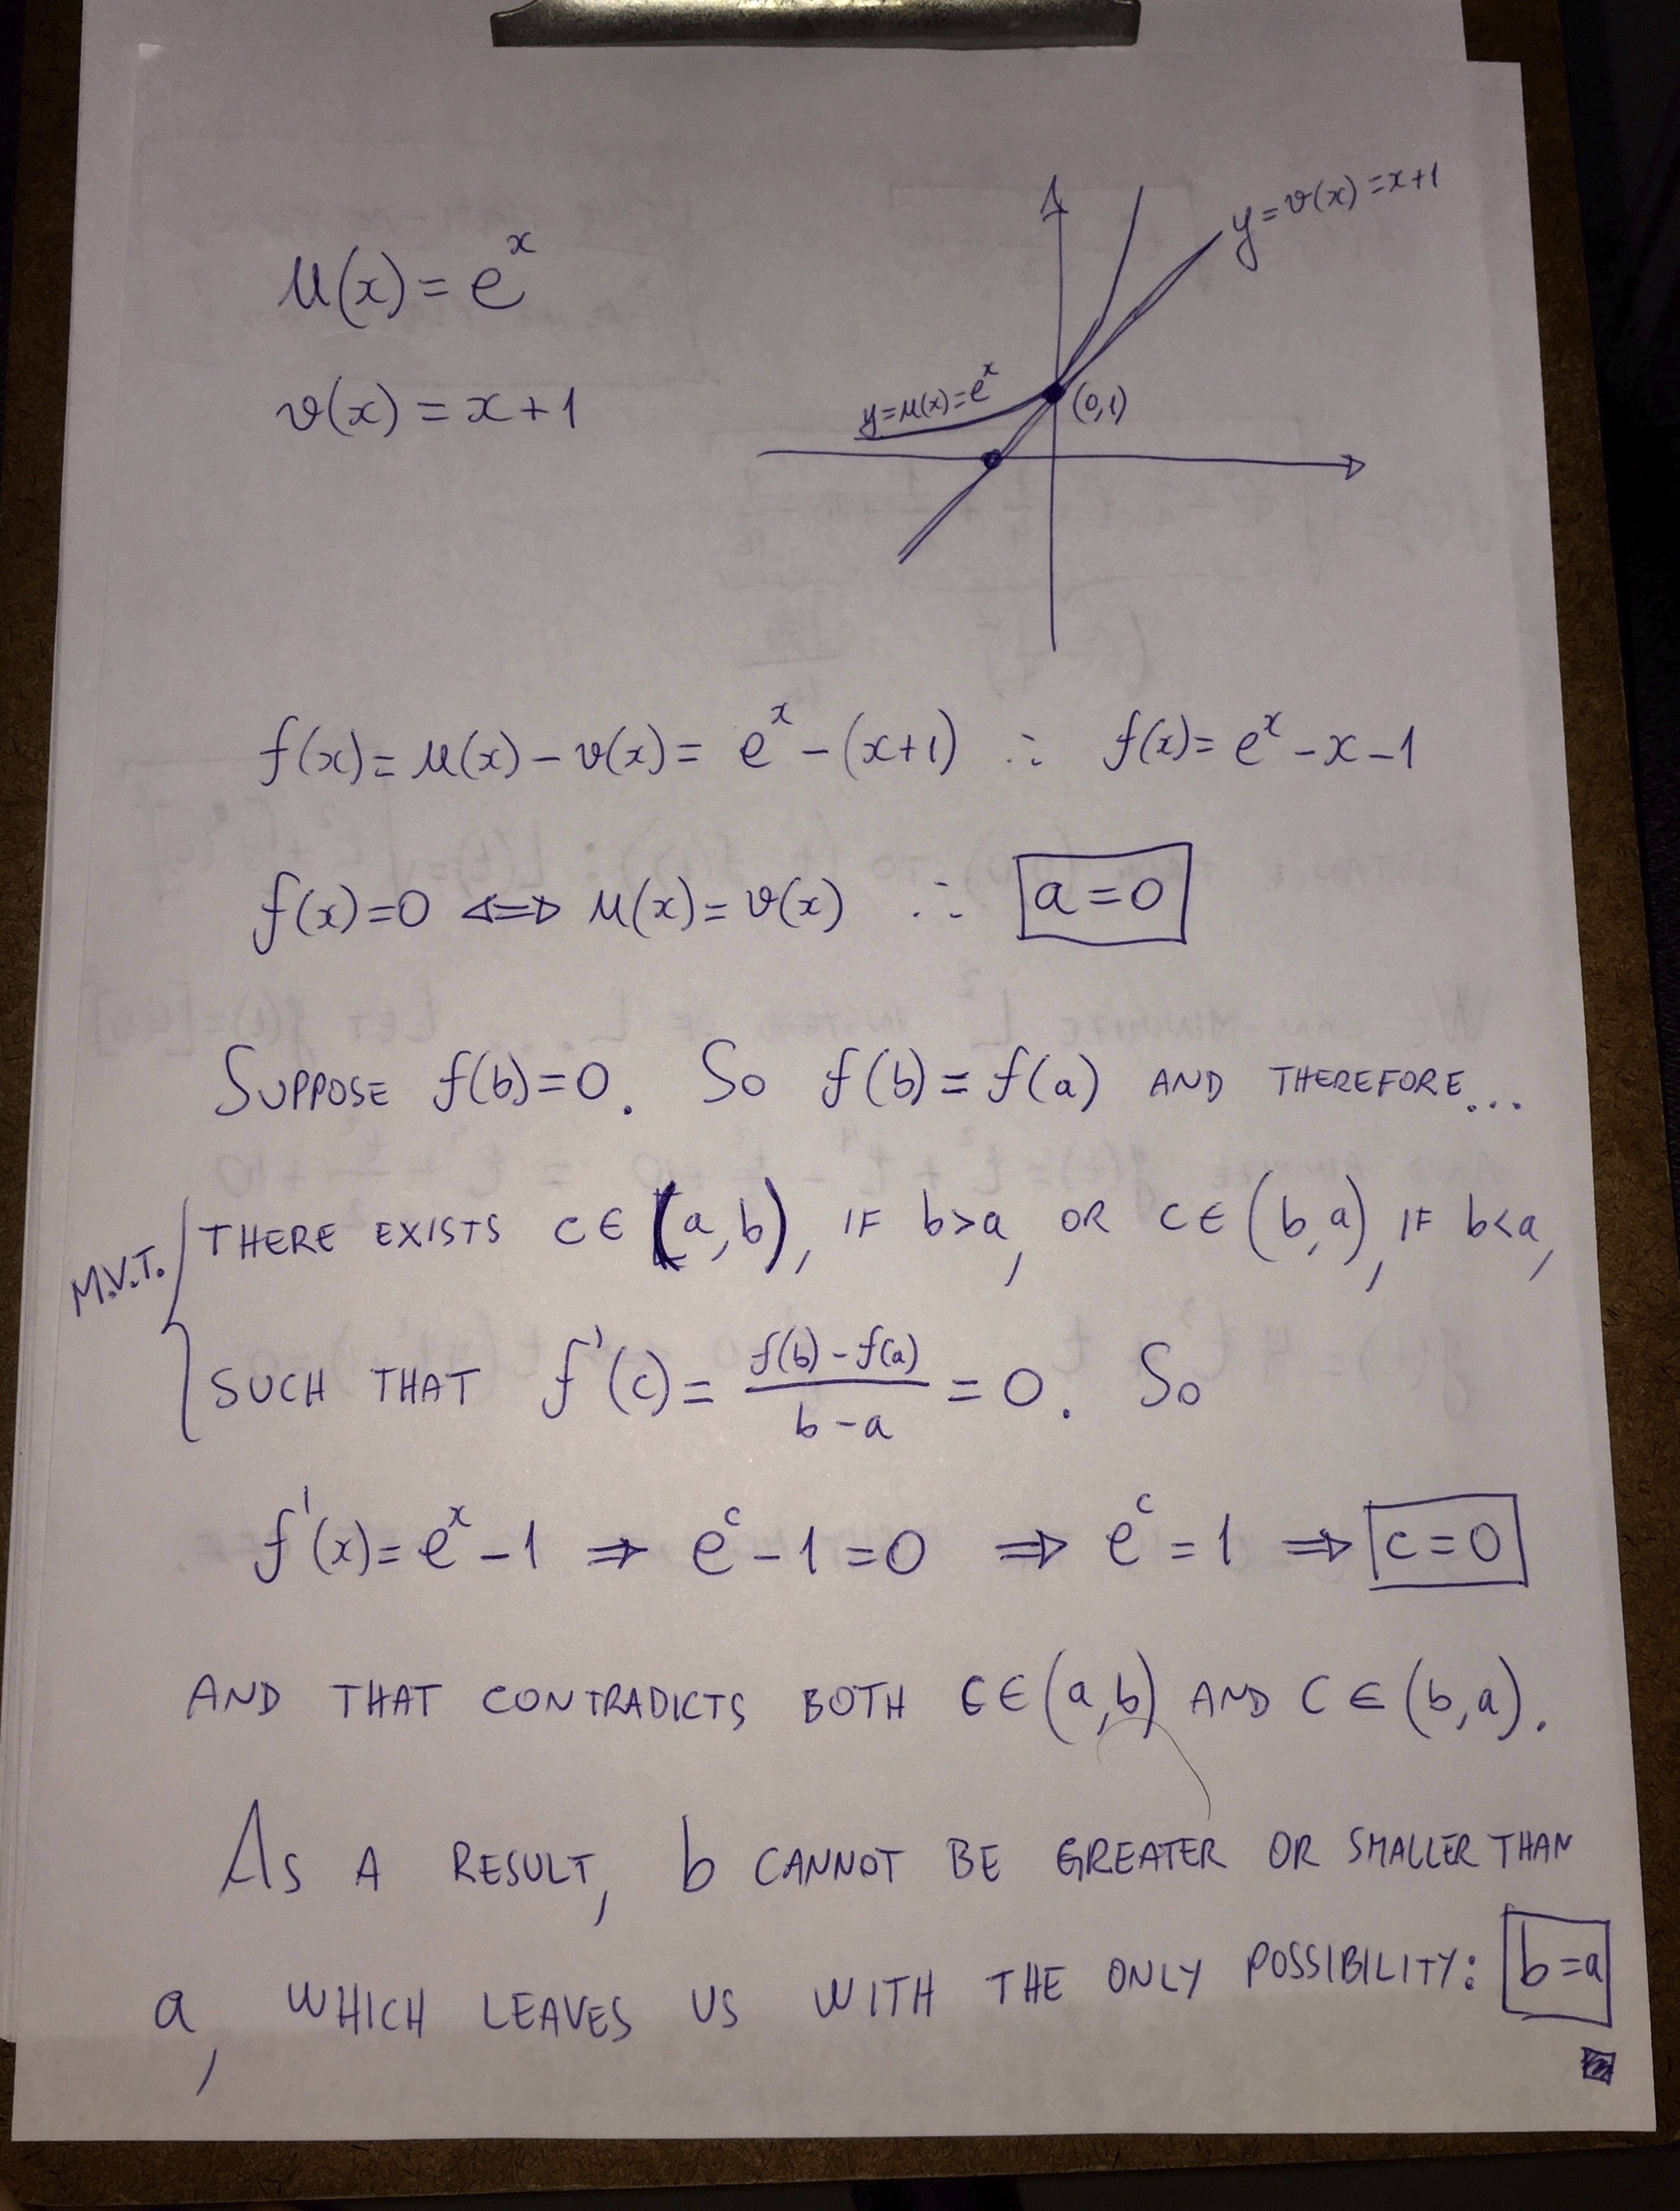 y=v(x)=x+1
μ(x)=eˣ
y=μ(x)=eˣ
v(x)=x+1
(0,1)
f(x)=μ(x)-v(x)=eˣ-(x+1) ∴ f(x)=eˣ-x-1
f(x)=0 ⇔ μ(x)=v(x) ∴ a=0
SUPPOSE f(b)=0. SO f(b)=f(a) AND THEREFORE...
M.V.T.
THERE EXISTS c∈(a,b), IF b>a, OR c∈(b,a), IF b<a,
SUCH THAT f'(c)= f(b)-f(a) / b-a =0. SO
f'(x)=eˣ-1 ⇒ eᶜ-1=0 ⇒ eᶜ=1 ⇒ c=0
AND THAT CONTRADICTS BOTH c∈(a,b) AND c∈(b,a).
AS A RESULT, b CANNOT BE GREATER OR SMALLER THAN
a, WHICH LEAVES US WITH THE ONLY POSSIBILITY: b=a